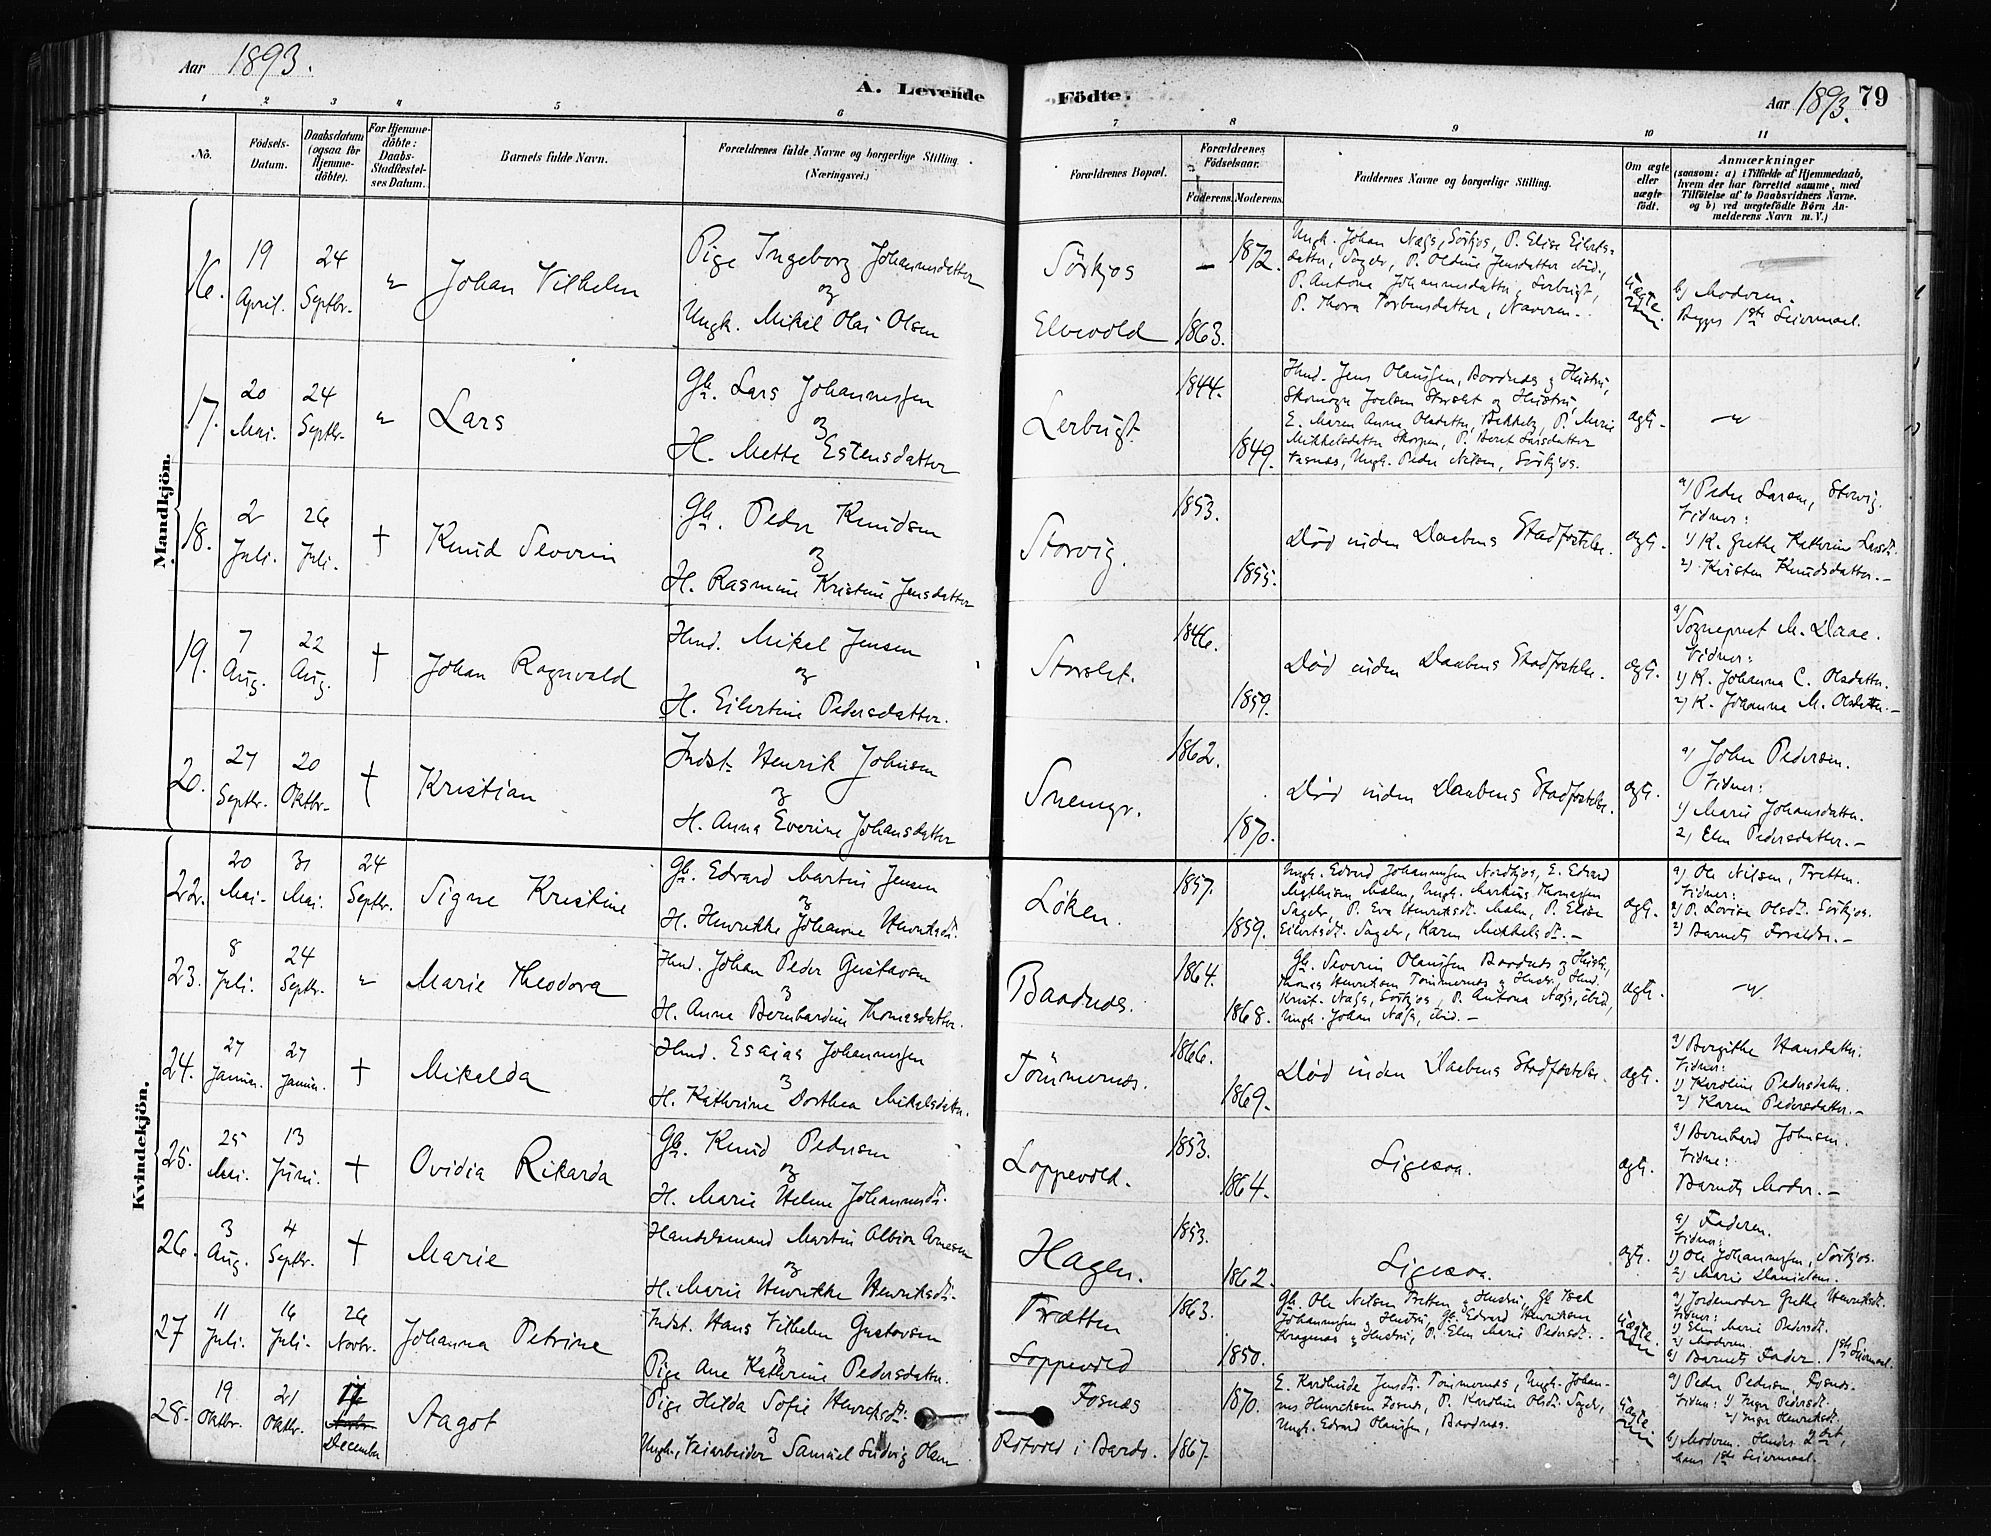 Aar 1893.
A. Levende
Födte.
Aar 1893. 79
1 2 3 4 5 6 7 8 9 10 11
No.
Födsels-Datum.
Daabsdatum (ogsaa for Hjemme-döbte).
For Hjemme-döbte: Daabs-Stadfæstelses Datum.
Barnets fulde Navn.
Forældrenes fulde Navne og borgerlige Stilling (Næringsvei.)
Forældrenes Bopæl.
Forældrenes Födselsaar.
Faderens. Moderens.
Faddernes Navne og borgerlige Stilling.
Om ægte eller uægte födt.
Anmærkninger
(saasom: a) i Tilfælde af Hjemmedaab, hvem der har forrettet samme, med Tilföielse af to Daabsvidners Navne. og b) ved uægtefödte Börn Anmelderens Navn m. V.)
Mandkjön.
16. 19 April. 24 Septbr. " Johan Vilhelm
Pige Ingeborg Johannesdatter
og
Ungk. Mikal Olai Olsen
Sörkjos — 1872.
Elvevold 1863.
Ungk. Johan Næss, Sörkjos, P. Elise Eilerts-
datter, Sageln, P. Oldine Jensdatter ibid.,
P. Antona Johannesdatter, Lerbugt,
P. Thora Torbensdatter, Naveren.
b) Moderen.
Begges 1ste Leiermaal.
17. 20 Mai. 24 Septbr. " Lars
Gb. Lars Johannessen
og
H. Mette Estensdatter
Lerbugt. 1844. 1849.
Hmd. Jens Olaussen, Baardnes og Hustru,
Storslet og Hustru,
E. Maren Anna Olsdatter, Bakkeby, P. Marie
Mikkelsdatter Skorpen, P. Beret Larsdatter
Fosnæs, Ungk. Peder Nilsen, Sörkjos.
ægte.
18. 2 Juli. 26 Juli. † Knud Severin
Gb. Peder Knudsen
og
H. Rasmine Kristine Jensdatter
Storvig. 1853. 1855.
Död inden Daabens Stadfæstelse. ægte.
a) Peder Larsen, Storvig.
Vidner:
1) K. Grethe Kathrine Larsdt.
2) Kirsten Knudsdatter.—
19. 7 Aug. 22 Aug. † Johan Ragnvald
Hmd. Mikel Jensen
og
H. Eilertine Pedersdatter.
Storslet. 1846. 1859.
Död inden Daabens Stadfæstelse. ægte.
a) Sogneprest M. Daae.
Vidner:
1) K. Johanna C. Olsdatter.
2) K. Johanna M. Olsdatter.—
20. 27 Septbr. 20 Oktbr. † Kristian
Indst. Henrik Johnsen
og
H. Anna Everine Johansdatter
Snemyr. 1862. 1870.
Död inden Daabens Stadfæstelse. ægte.
a) John Pedersen.
Vidner:
1) Marie Johansdatter.
2) Elen Pedersdatter.—
Kvindekjön.
22. 20 Mai. 31 Mai. 24 Septbr. Signe Kristine
Gb. Edvard Martin Jensen
og
H. Henrikke Johanne Henriksdt.
Löken. 1857. 1859.
Ungk. Edvard Johannessen Nordkjos, E. Edvard
Malm, Ungk. Markus Thomassen
Sageln, P. Eva Henriksdt. Malm, P. Elise
Eilertsdt. Sageln, Karen Mikkelsdt.—
ægte.
a) Ole Nilsen, Tretten.
Vidner:
1) P. Lovise Olsdt. Sörkjos.
2) Barnets Forældre.—
23. 8 Juli. 24 Septbr. " Marie Theodora
Hmd. Johan Peder Gustavsen
og
H. Anne Bernhardine Thomasdatter.
Baardnes. 1864. 1868.
Gb. Severin Olaussen Baardnes og Hustr.,
Thomas Henriksen Tömmernes og Hustr., Hmd.
Krist. Næss, Sörkjos, P. Antona Næss, ibid,
Ungk. Johan Næss, ibid.—
ægte.
24. 27 Januar. 27 Januar. † Mikalda
Hmd. Esaias Johannessen
og
H. Kathrine Dorthea Mikalsdatter.
Tömmernes. 1866. 1869.
Död inden Daabens Stadfæstelse. ægte.
a) Bergithe Hansdatter.
Vidner:
1) Karoline Pedersdatter.
2) Karen Pedersdatter.—
25. 25 Mai. 13 Juni. † Ovidia Rikarda
Gb. Knud Pedersen
og
H. Marie Helene Johannesdt.
Loppevold. 1853. 1864.
Ligesaa. ægte.
a) Bernhard Johnsen.
Vidne:
Barnets Moder.—
26. 3 Aug. 4 Septbr. † Marie
Handelsmand Martin Albion Arnesen
og
H. Marie Henrikke Henriksdt.
Hagen. 1853. 1862.
Ligesaa. ægte.
a) Faderen.
Vidner:
1) Ole Johannessen, Sörkjos.
2) Marie Danielsen.
27 11 Juli. 16 Juli. 26 Novbr. Johanna Petrine
Indst. Hans Vilhelm Gustavsen
og
Pige Ane Kathrine Pedersdatter.
Trætten 1863.
Loppevold 1850.
Gb. Ole Nilsen Tretten og Hustru, Gb. Isak
Johannessen og Hustru, Gb. Edvard Henriksen
Kragenæs og Hustru, P. Elen Marie Pedersdt.
a) Jordemoder Grethe Henriksdt.
Vidner:
1) Elen Marie Pedersdt.
2) Moderen.
b) Barnets Fader. 1ste Leiermaal.
28. 19 Oktbr. 21 Oktbr. 17 December Aagot
Pige Hilda Sofie Henriksdt.
og
Ungk., Veiarbeider Samuel Ludvig Olsen
Fosnæs 1870.
Rotvold i Bardo. 1867.
E. Jensdt. Tömmernes, Ungk. Johan-
nes Henriksen Fosnes, P. Karoline Olsdt. Sageln,
Ungk. Edvard Olaussen, Baardnes.
a) Peder Pedersen, Fosnes.
Vidner: 1) Inger Pedersdt.
2) Inger Henriksdt.
b) Moderen. Hendes 2det,
hans 1ste Leiermaal.